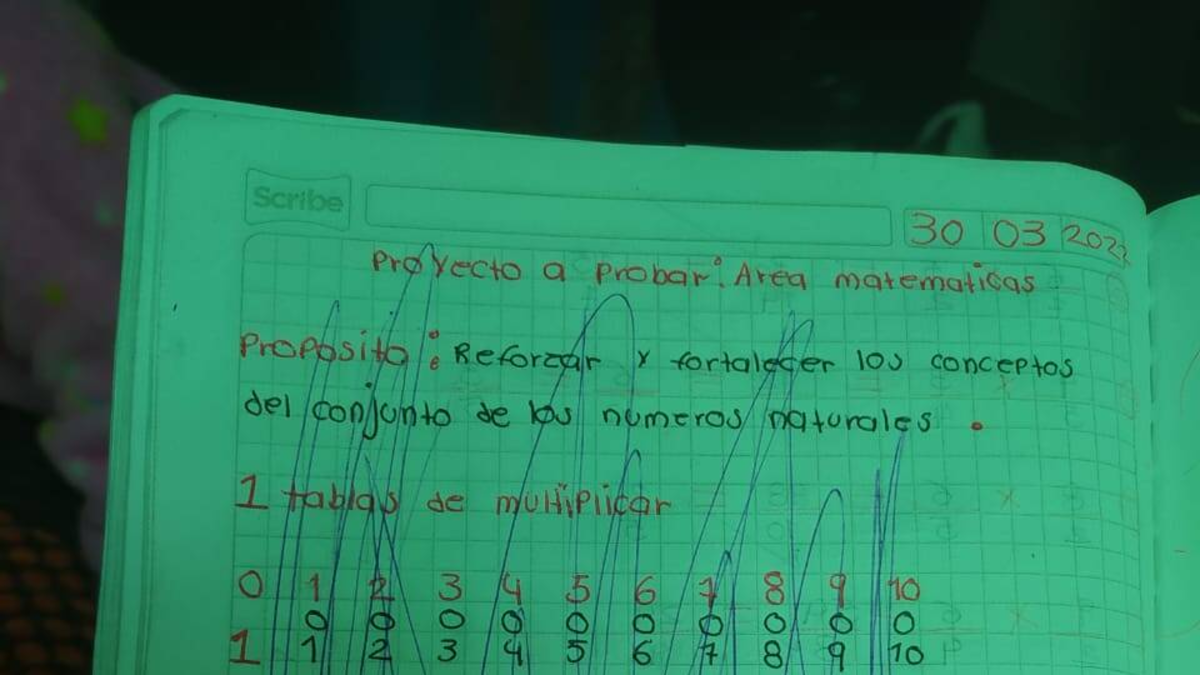 Scribe
30 03 2022
Proyecto a probar: Area matematicas
Proposito: Reforzar y fortalecer los conceptos
del conjunto de los numeros naturales .
1 tablas de multiplicar
0 1 2 3 4 5 6 7 8 9 10
0 0 0 0 0 0 0 0 0 0
1 1 2 3 4 5 6 7 8 9 10